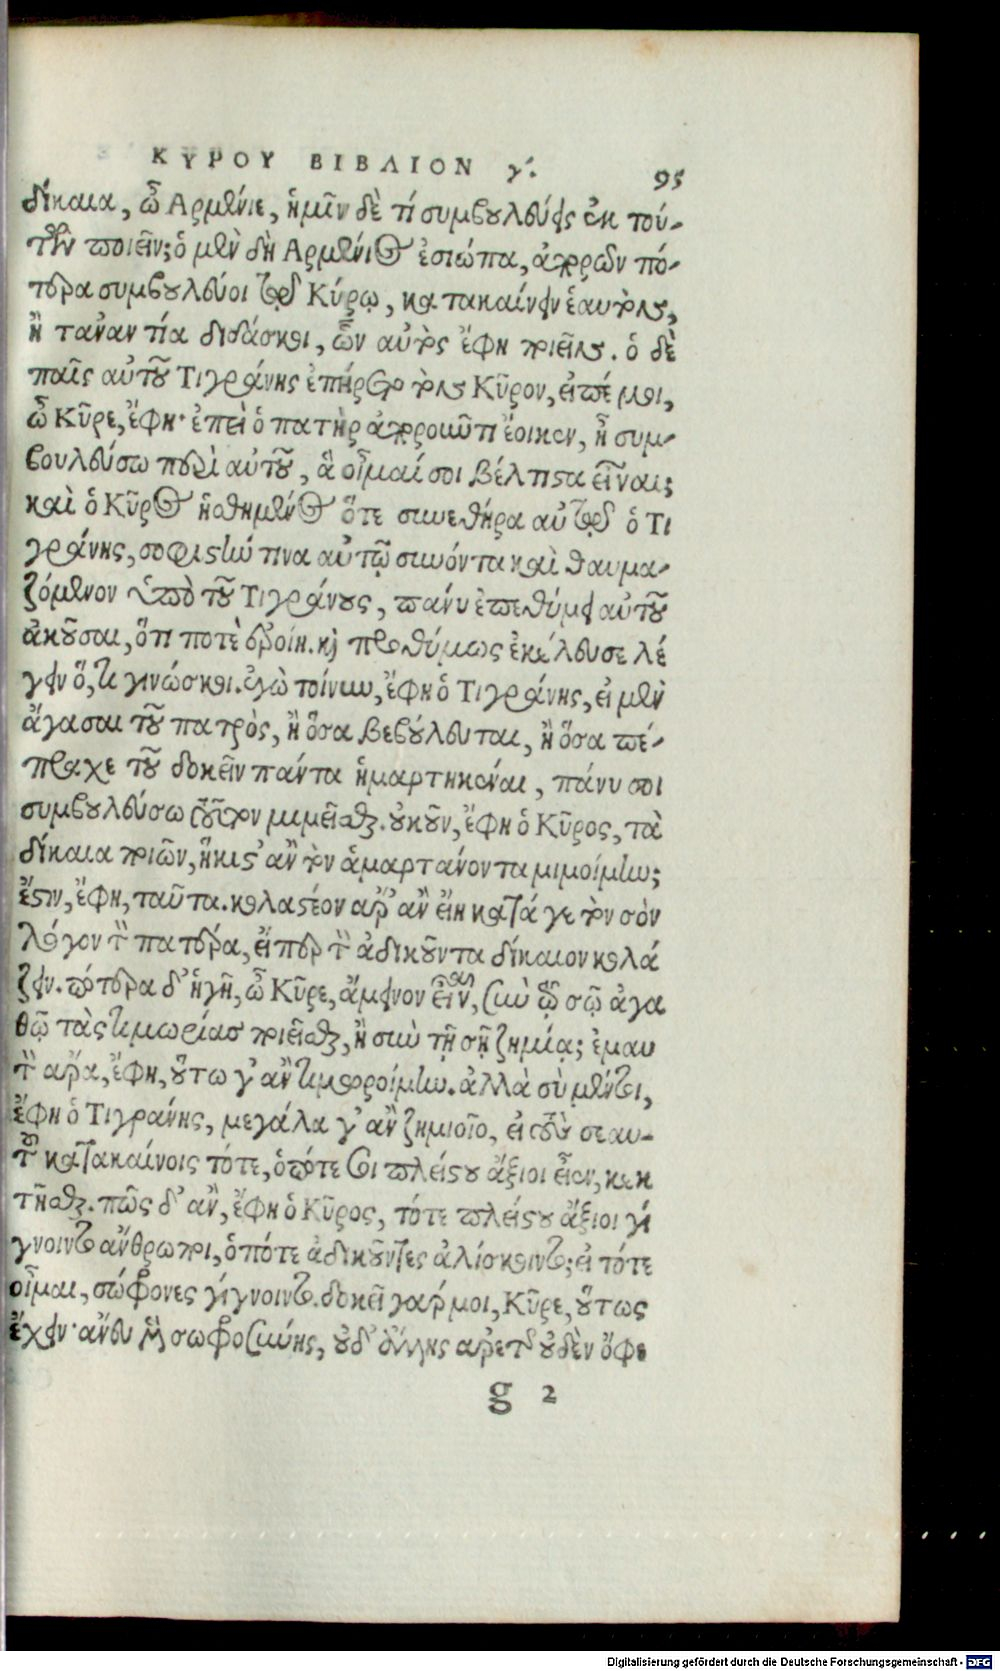 ΚΥΡΟΥ ΒΙΒΛΙΟΝ γ΄. 95
δίκαια, ὦ Αρμένιε, ἡμῖν δὲ τί συμβουλεύεις ἐκ τού-
των ποιεῖν; ὁ μὲν δὴ Αρμένιος ἐσιώπα, ἀπορῶν πό-
τερα συμβουλεύοι τῷ Κύρῳ, κατακαίνειν ἑαυτὸν,
ἢ τἀναντία διδάσκοι, ὧν αὐτὸς ἔφη ποιεῖν. ὁ δὲ
παῖς αὐτοῦ Τιγράνης ἐπήρετο τὸν Κῦρον, εἰπέ μοι,
ὦ Κῦρε, ἔφη· ἐπεὶ ὁ πατὴρ ἀποροῦντι ἔοικεν, ἦ συμ-
βουλεύσω περὶ αὐτοῦ, ἃ οἶμαί σοι βέλτιστα εἶναι;
καὶ ὁ Κῦρος ᾐσθημένος ὅτε συνεθήρα αὐτῷ ὁ Τι
γράνης, σοφιστήν τινα αὐτῷ συνόντα καὶ θαυμα-
ζόμενον ὑπὸ τοῦ Τιγράνους, πάνυ ἐπεθύμει αὐτοῦ
ἀκοῦσαι, ὅτι ποτὲ ἐροίη. καὶ προθύμως ἐκέλευσε λέ
γειν ὅ,τι γινώσκοι. ἐγὼ τοίνυν, ἔφη ὁ Τιγράνης, εἰ μὲν
ἄγασαι τοῦ πατρὸς, ἢ ὅσα βεβούλευται, ἢ ὅσα πέ-
πραχε τοῦ δοκεῖν πάντα ἡμαρτηκέναι, πάνυ σοι
συμβουλεύσω τοῦτον μιμεῖσθαι. οὐκοῦν, ἔφη ὁ Κῦρος, τὰ
δίκαια ποιῶν, ἥκιστ' ἂν τὸν ἁμαρτάνοντα μιμοίμην;
ἔστιν, ἔφη, ταῦτα. κολαστέον ἄρ' ἂν εἴη κατά γε τὸν σὸν
λόγον τὸν πατέρα, εἴπερ τὸν ἀδικοῦντα δίκαιον κολά
ζειν. πότερα δ' ἡγῇ, ὦ Κῦρε, ἄμεινον εἶναι, σὺν τῷ σῷ ἀγα
θῷ τὰς τιμωρίας ποιεῖσθαι, ἢ σὺν τῇ σῇ ζημίᾳ; ἐμαυ
τὸν ἄρα, ἔφη, οὕτω γ' ἂν τιμωροίμην. ἀλλὰ σὺ μέντοι,
ἔφη ὁ Τιγράνης, μεγάλα γ' ἂν ζημιοῖο, εἰ τοὺς σεαυ-
τοῦ κατακαίνοις τότε, ὁπότε σοι πλείστου ἄξιοι εἶεν, κεκ
τῆσθαι. πῶς δ' ἂν, ἔφη ὁ Κῦρος, τότε πλείστου ἄξιοι γί
γνοιντο ἄνθρωποι, ὁπότε ἀδικοῦντες ἁλίσκοιντο; εἰ τότε
οἶμαι, σώφρονες γίγνοιντο. δοκεῖ γάρ μοι, Κῦρε, οὕτως
ἔχειν· ἄνευ μὲν σωφροσύνης, οὐδ' ἄλλης ἀρετῆς οὐδὲν ὄφε
g 2
Digitalisierung gefördert durch die Deutsche Forschungsgemeinschaft - DFG